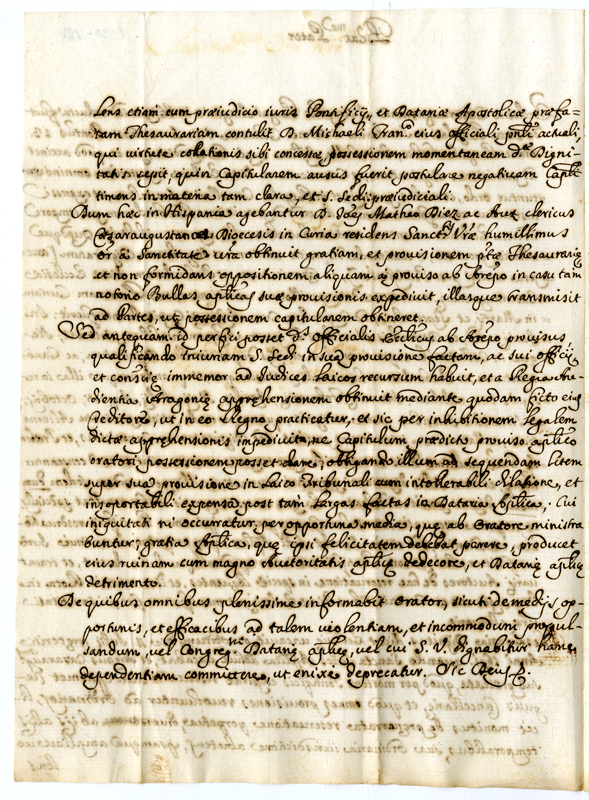 lens etiam cum præiudicio iuris Pontificij, et Datariæ Apostolicæ præfa=
tam Thesaurariam contulit D. Michaeli Franco eius officiali actuali,
qui virtute collationis sibi concessæ possessionem momentaneam dtæ Digni-
tatis cepit, quin Capitularem ausus fuerit postulare negativam Capli
timens in materia tam clara, et S. Sedi præiudiciali.
Dum hæc in Hispania agebantur D. Matheo Diez ac Aux clericus
Cæsaraugustanæ Diœcesis in Curia residens Sanctis Vræ humillimus
or à Sanctitate vra obtinuit gratiam, et provisionem Thesaurariæ
et non formidans oppositionem aliquam à proviso ab Arēpo in casu tam
notorio Bullas aplicas suæ provisionis expedivit, illasque transmisit
ad partes, ut possessionem capitularem obtineret.
Sed antequam id perfici posset ds Officialis Ecclicus ab Arēpo provisus
qualificando iniuriam S. Sedi in sua provisione factam, ac sui officij,
et conscię immemor ad Iudices laicos recursum habuit, et a Regia Au-
dientia Aragoniæ apprehensionem obtinuit mediante quodam ficto eius
, ut in eo Regno practicatur, et sic per inhibitionem legalem
dictæ apprehensionis impedivit, ne Capitulum prædictum proviso aplico
oratori possessionem posset dare, obligando illum ad sequendam litem
super sua provisione in laico Tribunali cum intolerabili dilatione, et
insoportabili expensa post tam largas factas in Dataria Aplica. Cui
iniquitati ni occurratur per opportuna media, quæ ab Oratore ministra
buntur; gratia Aplica, quæ ipsi felicitatem debebat parere, producet
eius ruinam cum magno Auctoritatis aplicę dedecore, et Datariæ aplicę
detrimento.
De quibus omnibus plenissime informabit Orator, sicuti de medijs op-
portunis, et efficacibus ad talem violentiam, et incommodum propul-
sandum, vel Congregni Datariæ aplicę, vel cui S. V. dignabitur hanc
dependentiam committere, ut enixe deprecatur. Sic Deus &.